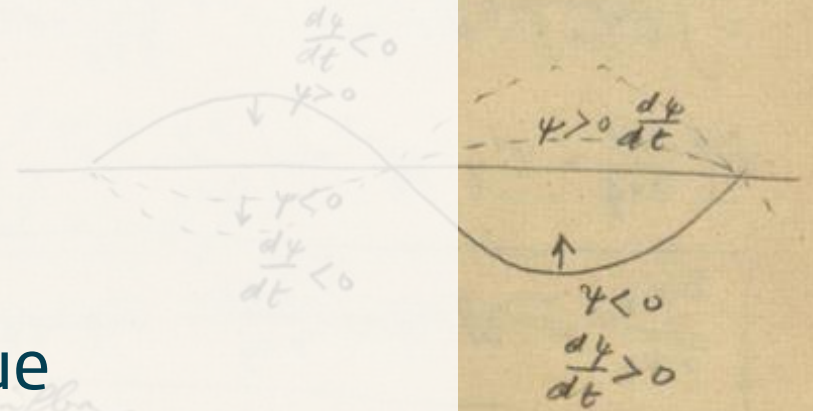 dψ/dt < 0
ψ>0
ψ>0 dψ/dt
ψ<0
dψ/dt < 0
ψ<0
dψ/dt > 0
ue